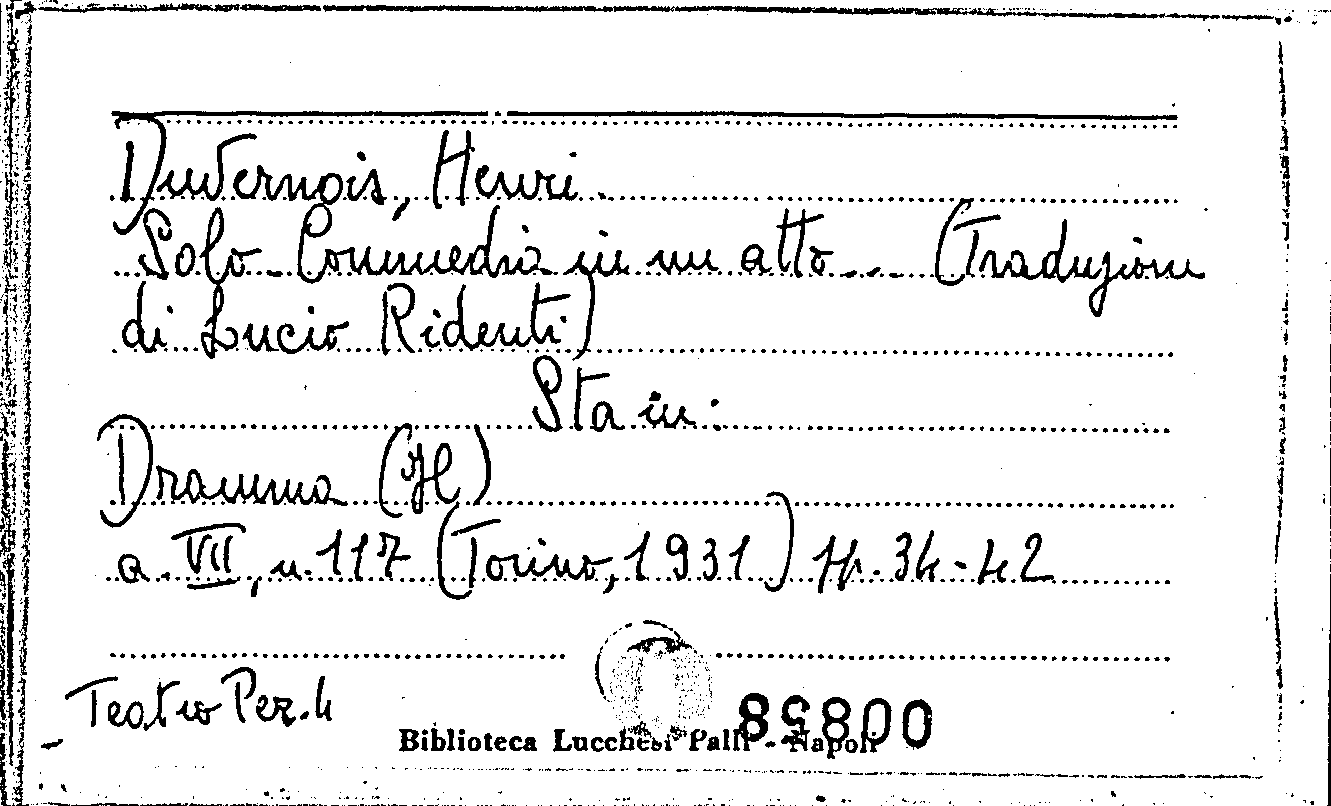 Duvernois, Henri.
Solo. Commedia in un atto... (Traduzione
di Lucio Ridenti)
Sta in:
Dramma (Il)
a. VII, n. 117 (Torino, 1931) pp. 34-42
Teatro Per. 4
Biblioteca Lucchesi Palli - Napoli